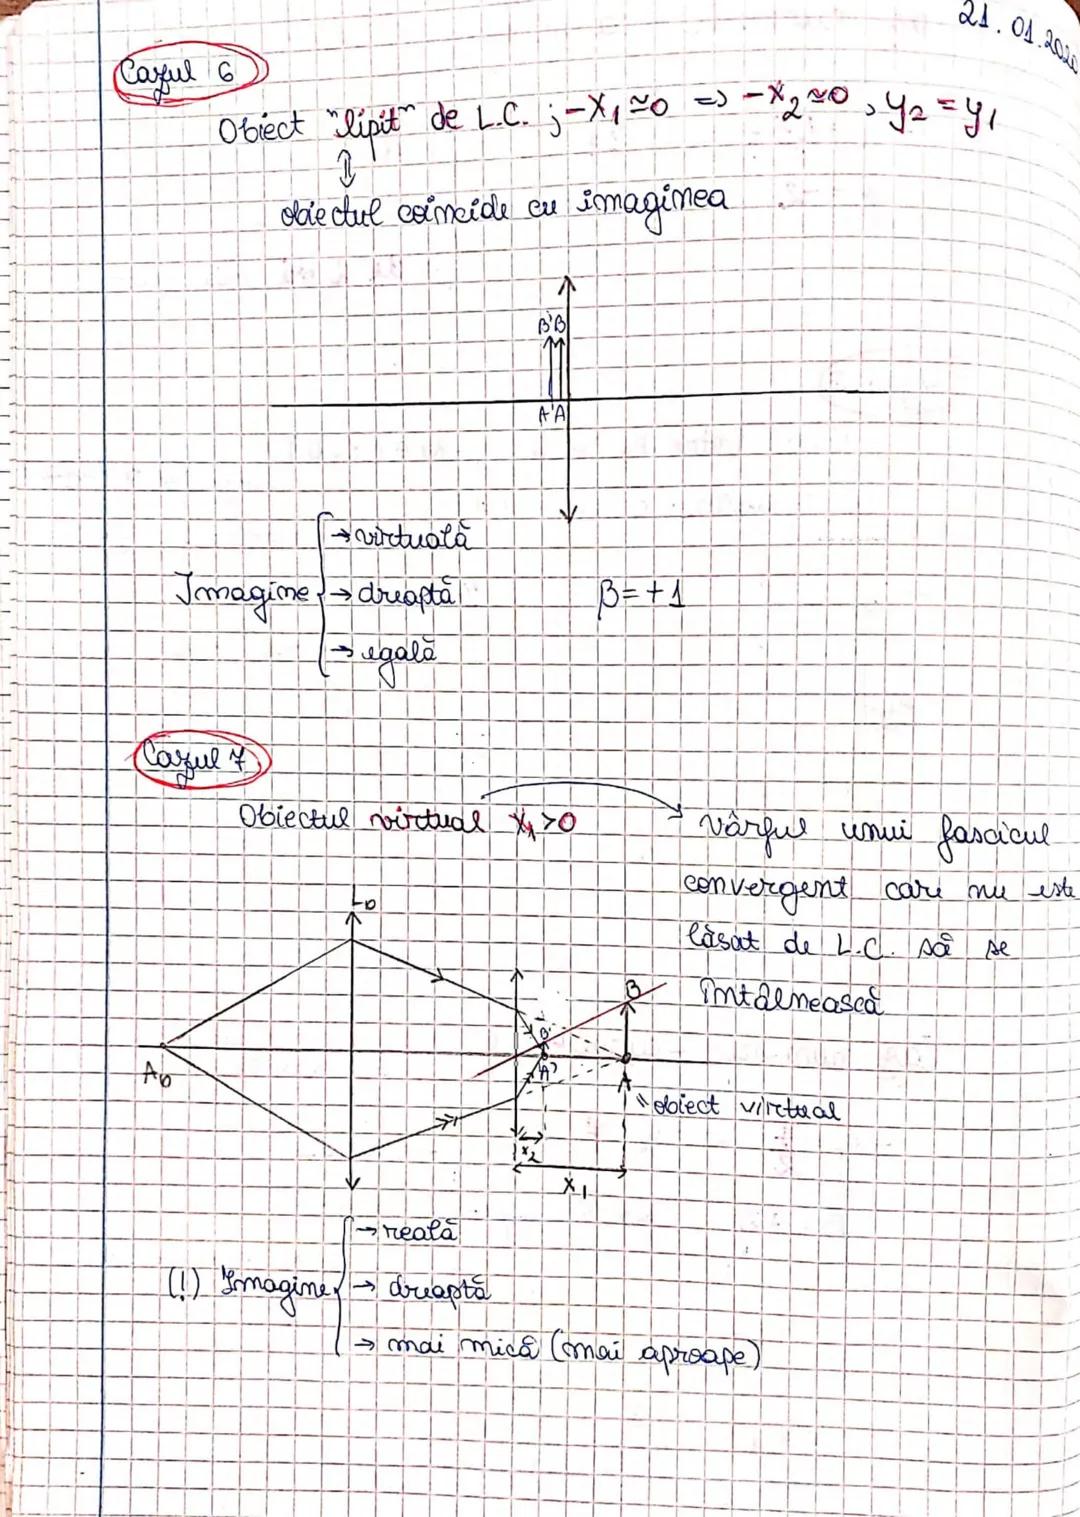 21.01.202
Cazul 6
Obiect "lipit" de L.C. ; -x₁ ≃ 0 => -x₂ ≃ 0 , y₂ = y₁
⇕
obiectul coincide cu imaginea
B'B
A'A
→ virtuală
Imagine → dreaptă β = +1
→ egală
Cazul 7
Obiectul virtual x₁ > 0 → vârful unui fascicul
convergent care nu este
lăsat de L.C. să se
întâlnească
L₀
B
B'
A₀ A' A
obiect virtual
x₂
x₁
→ reală
(!) Imagine → dreaptă
→ mai mică (mai aproape)